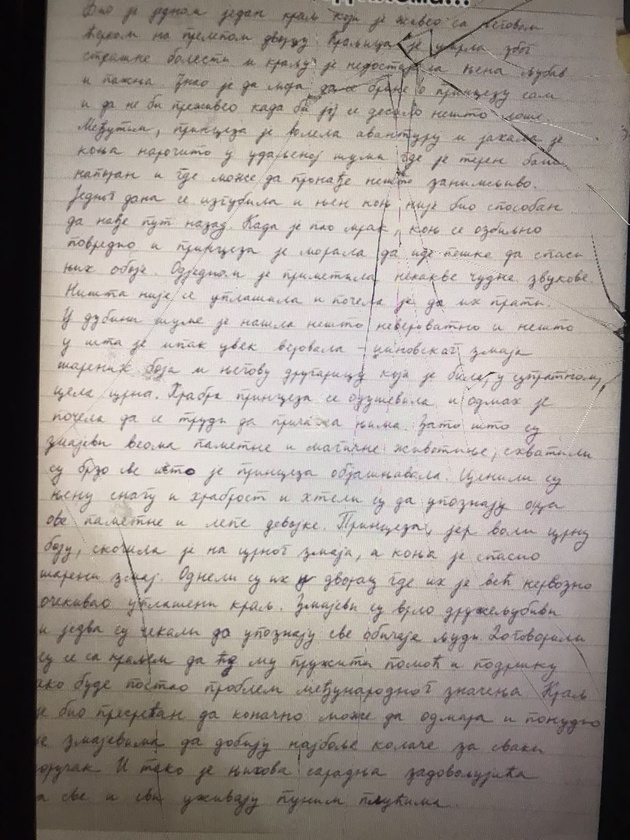 Био је једном један краљ који је живео са његовом
ћерком на прелепом двору. Краљица је умрла због
страшне болести и краљу је недостајала њена љубав
и пажња. Знао је да мора да брине о принцези сам
и да не би преживео када би јој се десило нешто лоше.
Међутим, принцеза је волела авантуру и јахала је
коња нарочито у удаљеној шуми где је терен био
напоран и где може да пронађе нешто занимљиво.
Једног дана се изгубила и њен коњ није био способан
да нађе пут назад. Када је пао мрак, коњ се озбиљно
повредио и принцеза је морала да иде пешке да спаси
њих обоје. Одједном је приметила некакве чудне звукове.
Ништа није се уплашила и почела је да их прати.
У дубини шуме је нашла нешто невероватно и нешто
у шта је ипак увек веровала – џиновског змаја
шарених боја и његову другарицу која је била, у супротному,
цела црна. Храбра принцеза се одушевила и одмах је
почела да се труди да прилази њима. Зато што су
змајеви веома паметне и магичне животиње, схватили
су брзо све што је принцеза објашњавала. Ценили су
њену снагу и храброст и хтели су да упознају оца
ове паметне и лепе девојке. Принцеза, јер воли црну
боју, скочила је на црног змаја, а коња је спасио
шарени змај. Однели су их у дворац где их је већ нервозно
очекивао уплашени краљ. Змајеви су врло дружељубиви
и једва су чекали да упознају све обичаје људи. Договорили
су се са краљем да ће му пружити помоћ и подршку
ако буде постао проблем међународног значења. Краљ
је био пресрећан да коначно може да одмара и понудио
је змајевима да добију најбоље колаче за сваки
оручак. И тако је њихова сарадња задовољујућа
а све и сви уживају пуним плућима.